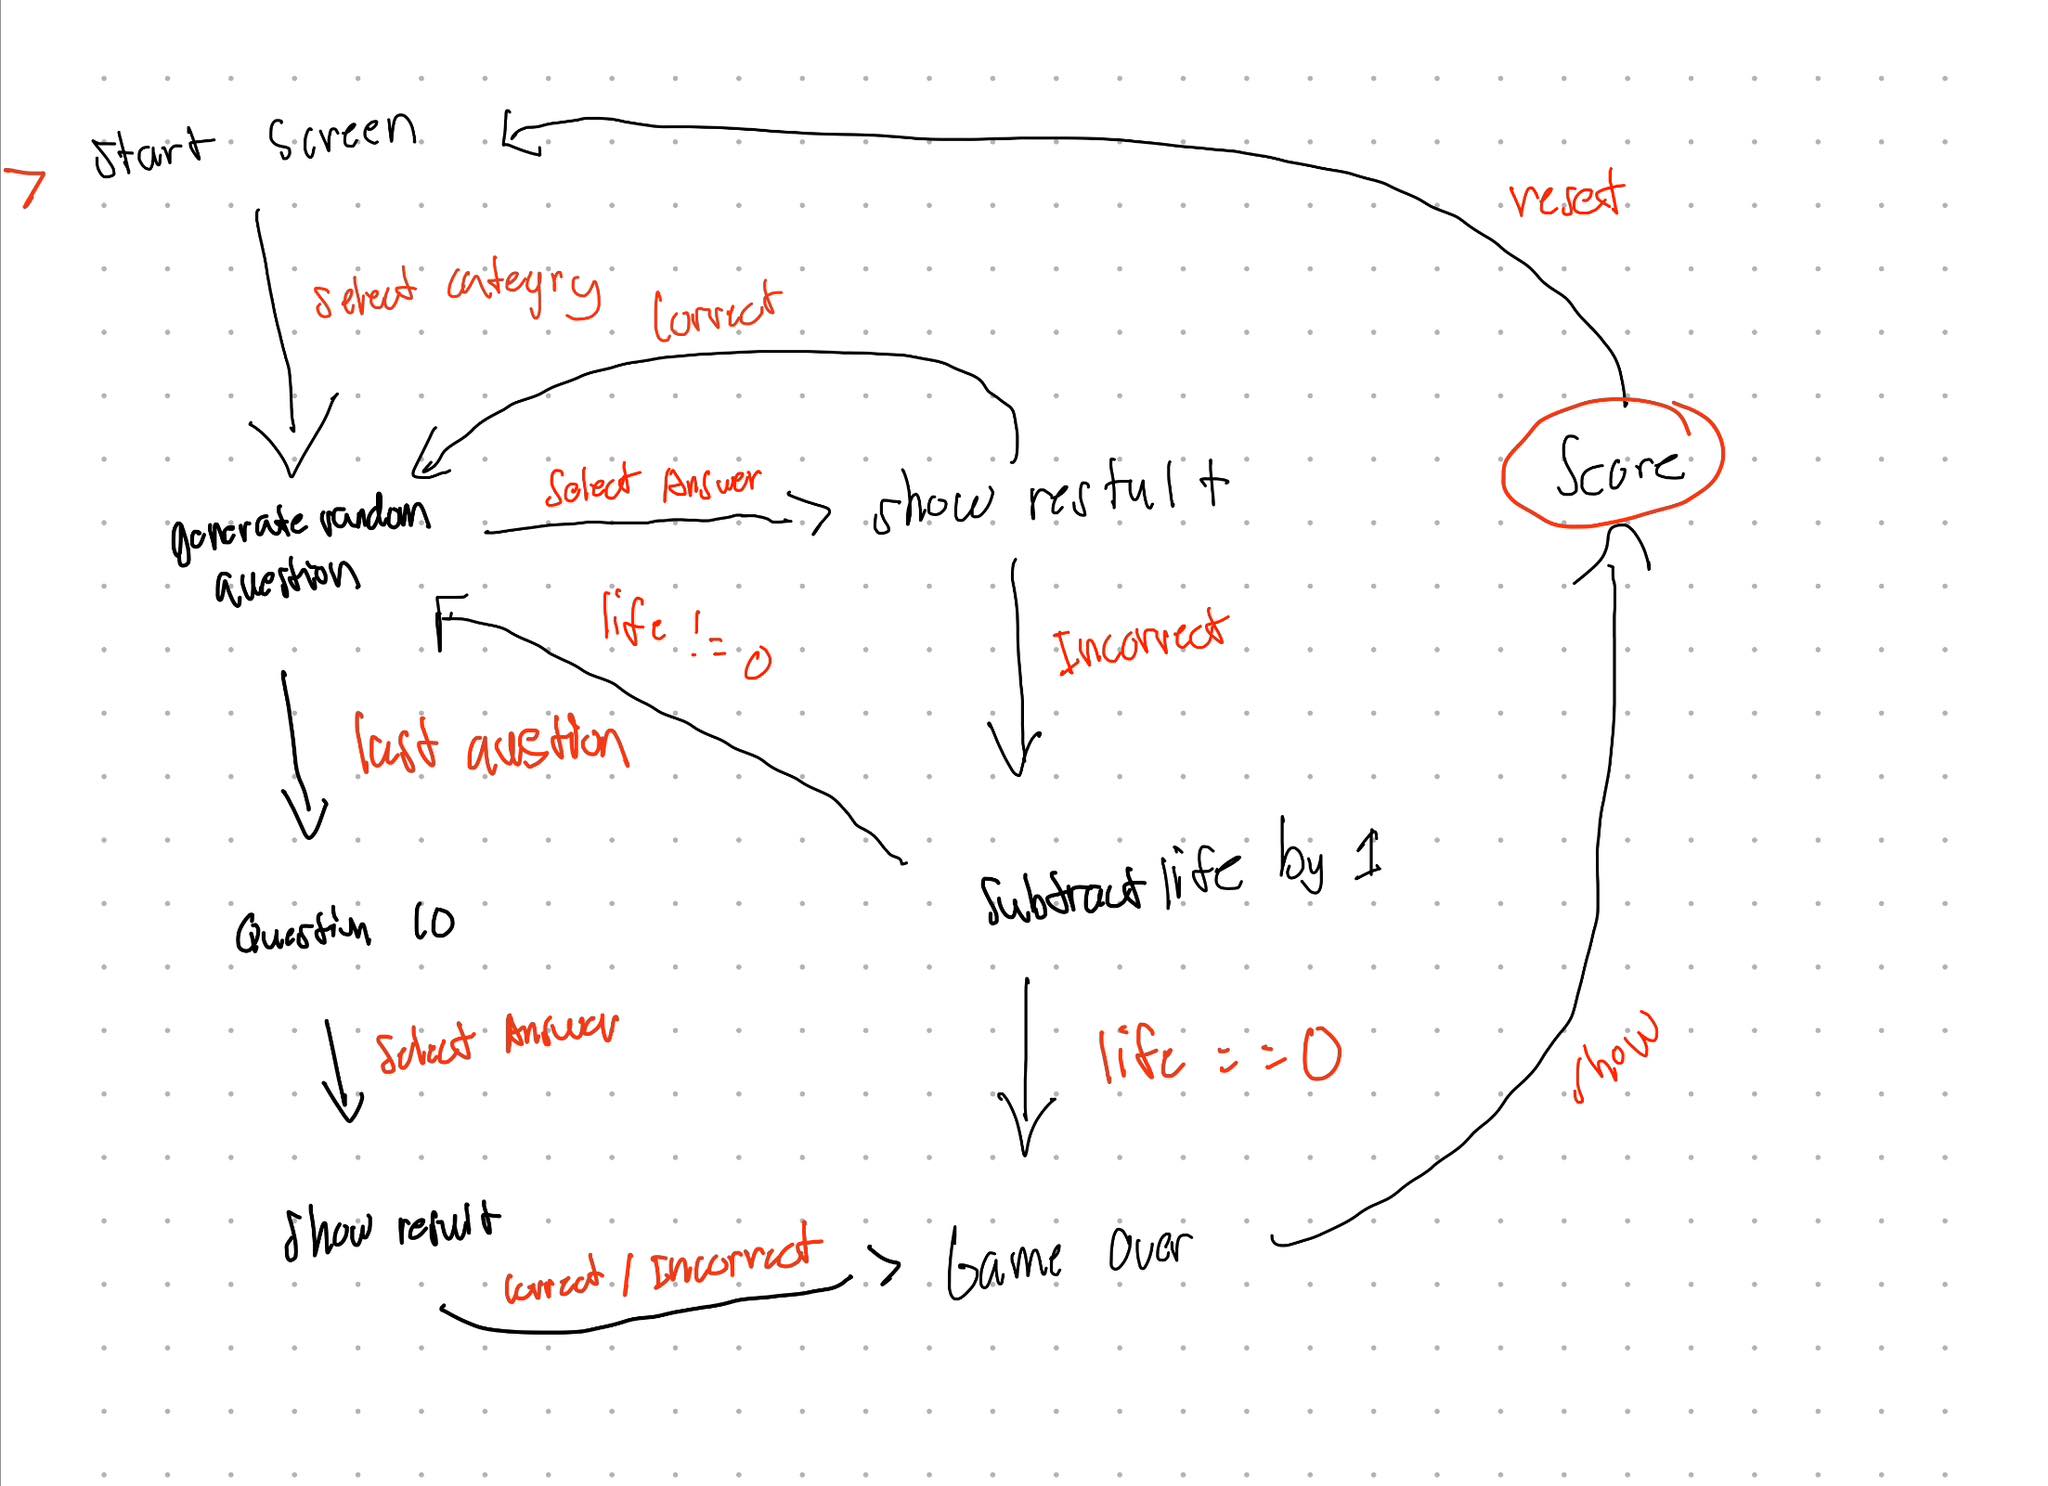 Start Screen
>
reset
Select categry
Correct
Score
Select Answer
show restult
generate random
question
life != 0
Incorrect
last question
Subtract life by 1
Question 10
Select Answer
life == 0
show
Show result
Correct / Incorrect
Game Over